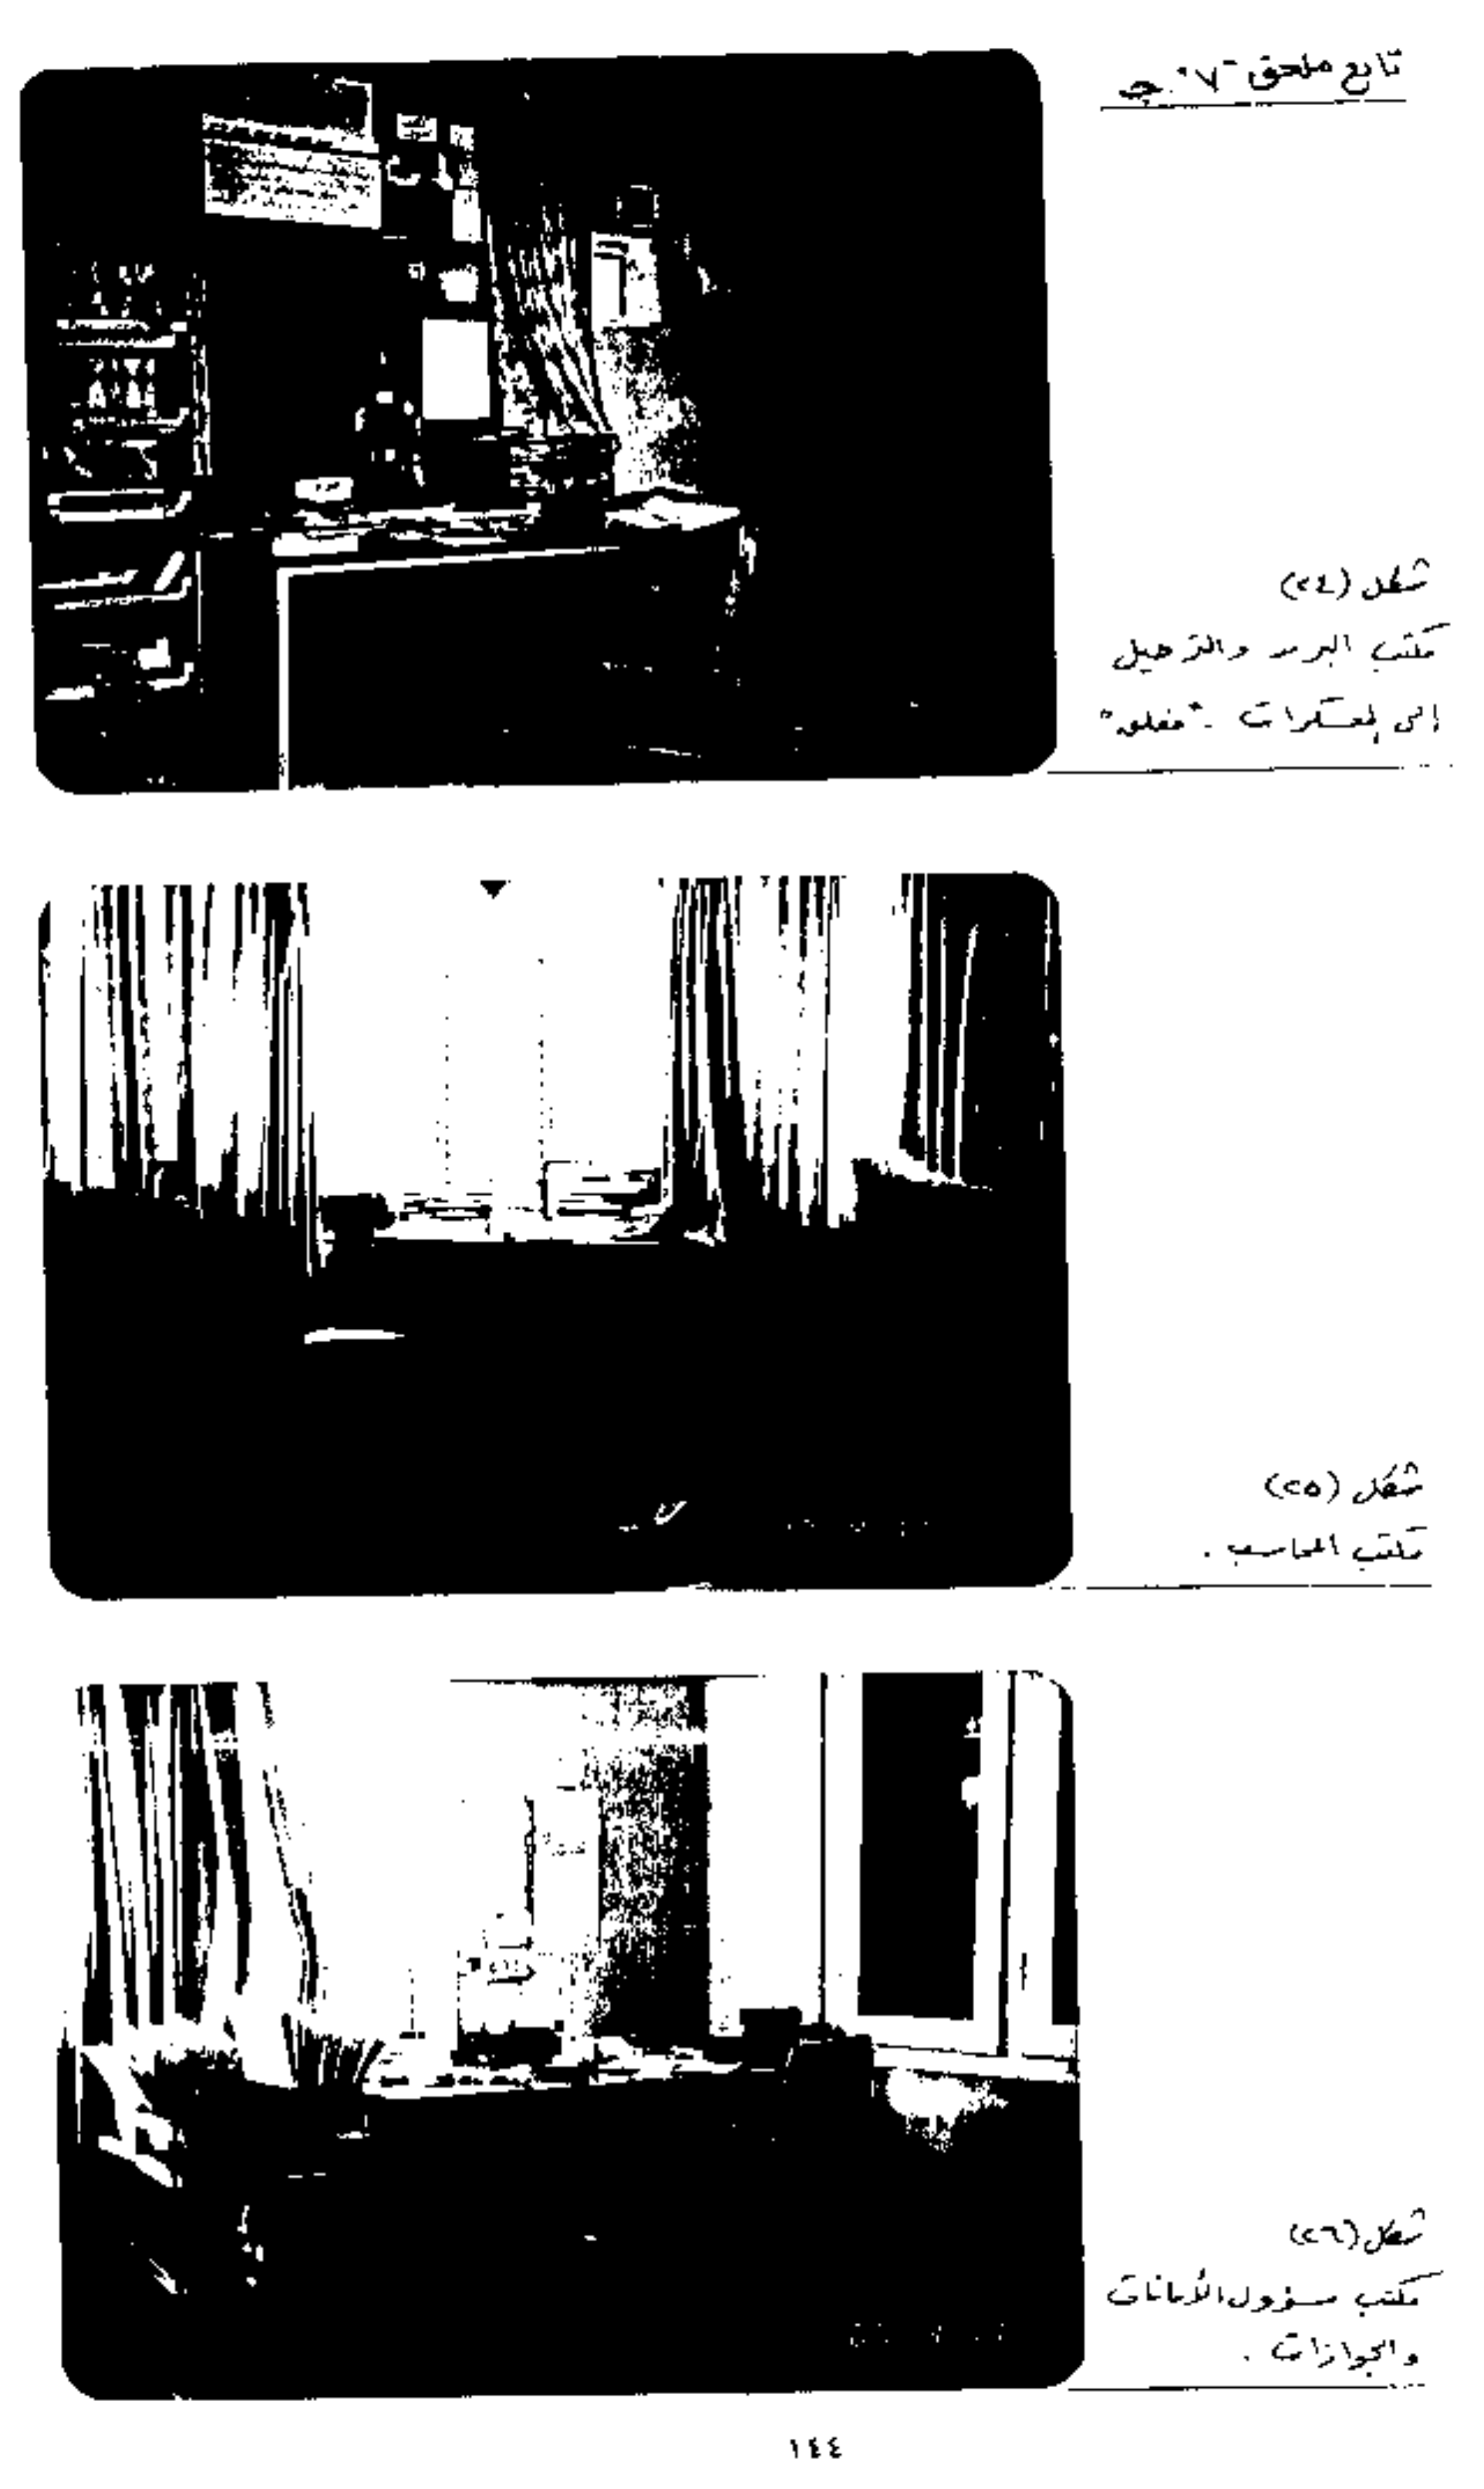 تابع ملحق -٧٠
شكل (٢٤)
مكتب البريد والترحيل
إلى المعسكرات - "مغلق"
شكل (٢٥)
مكتب المحاسب .
شكل (٢٦)
مكتب مسؤول الأمانات
والجوازات .
١٤٤